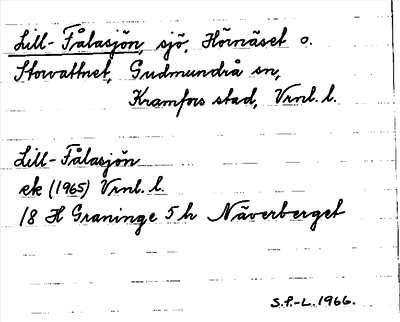 Lill-Fålasjön, sjö, Hörnäset o.
Storvattnet, Gudmundrå sn,
Kramfors stad, Vrnl. l.
Lill-Fålasjön
ek (1965) Vrnl. l.
18 H Graninge 5 h Näverberget
S.F.-L. 1966.